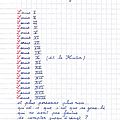 Louis I
Louis II
Louis III
Louis IV
Louis V
Louis VI
Louis VII
Louis VIII
Louis IX
Louis X (dit le Hutin)
Louis XI
Louis XII
Louis XIII
Louis XIV
Louis XV
Louis XVI
Louis XVIII
et plus personne plus rien
qu'est-ce que c'est que ces gens-là
qui ne sont pas foutus
de compter jusqu'à vingt ?